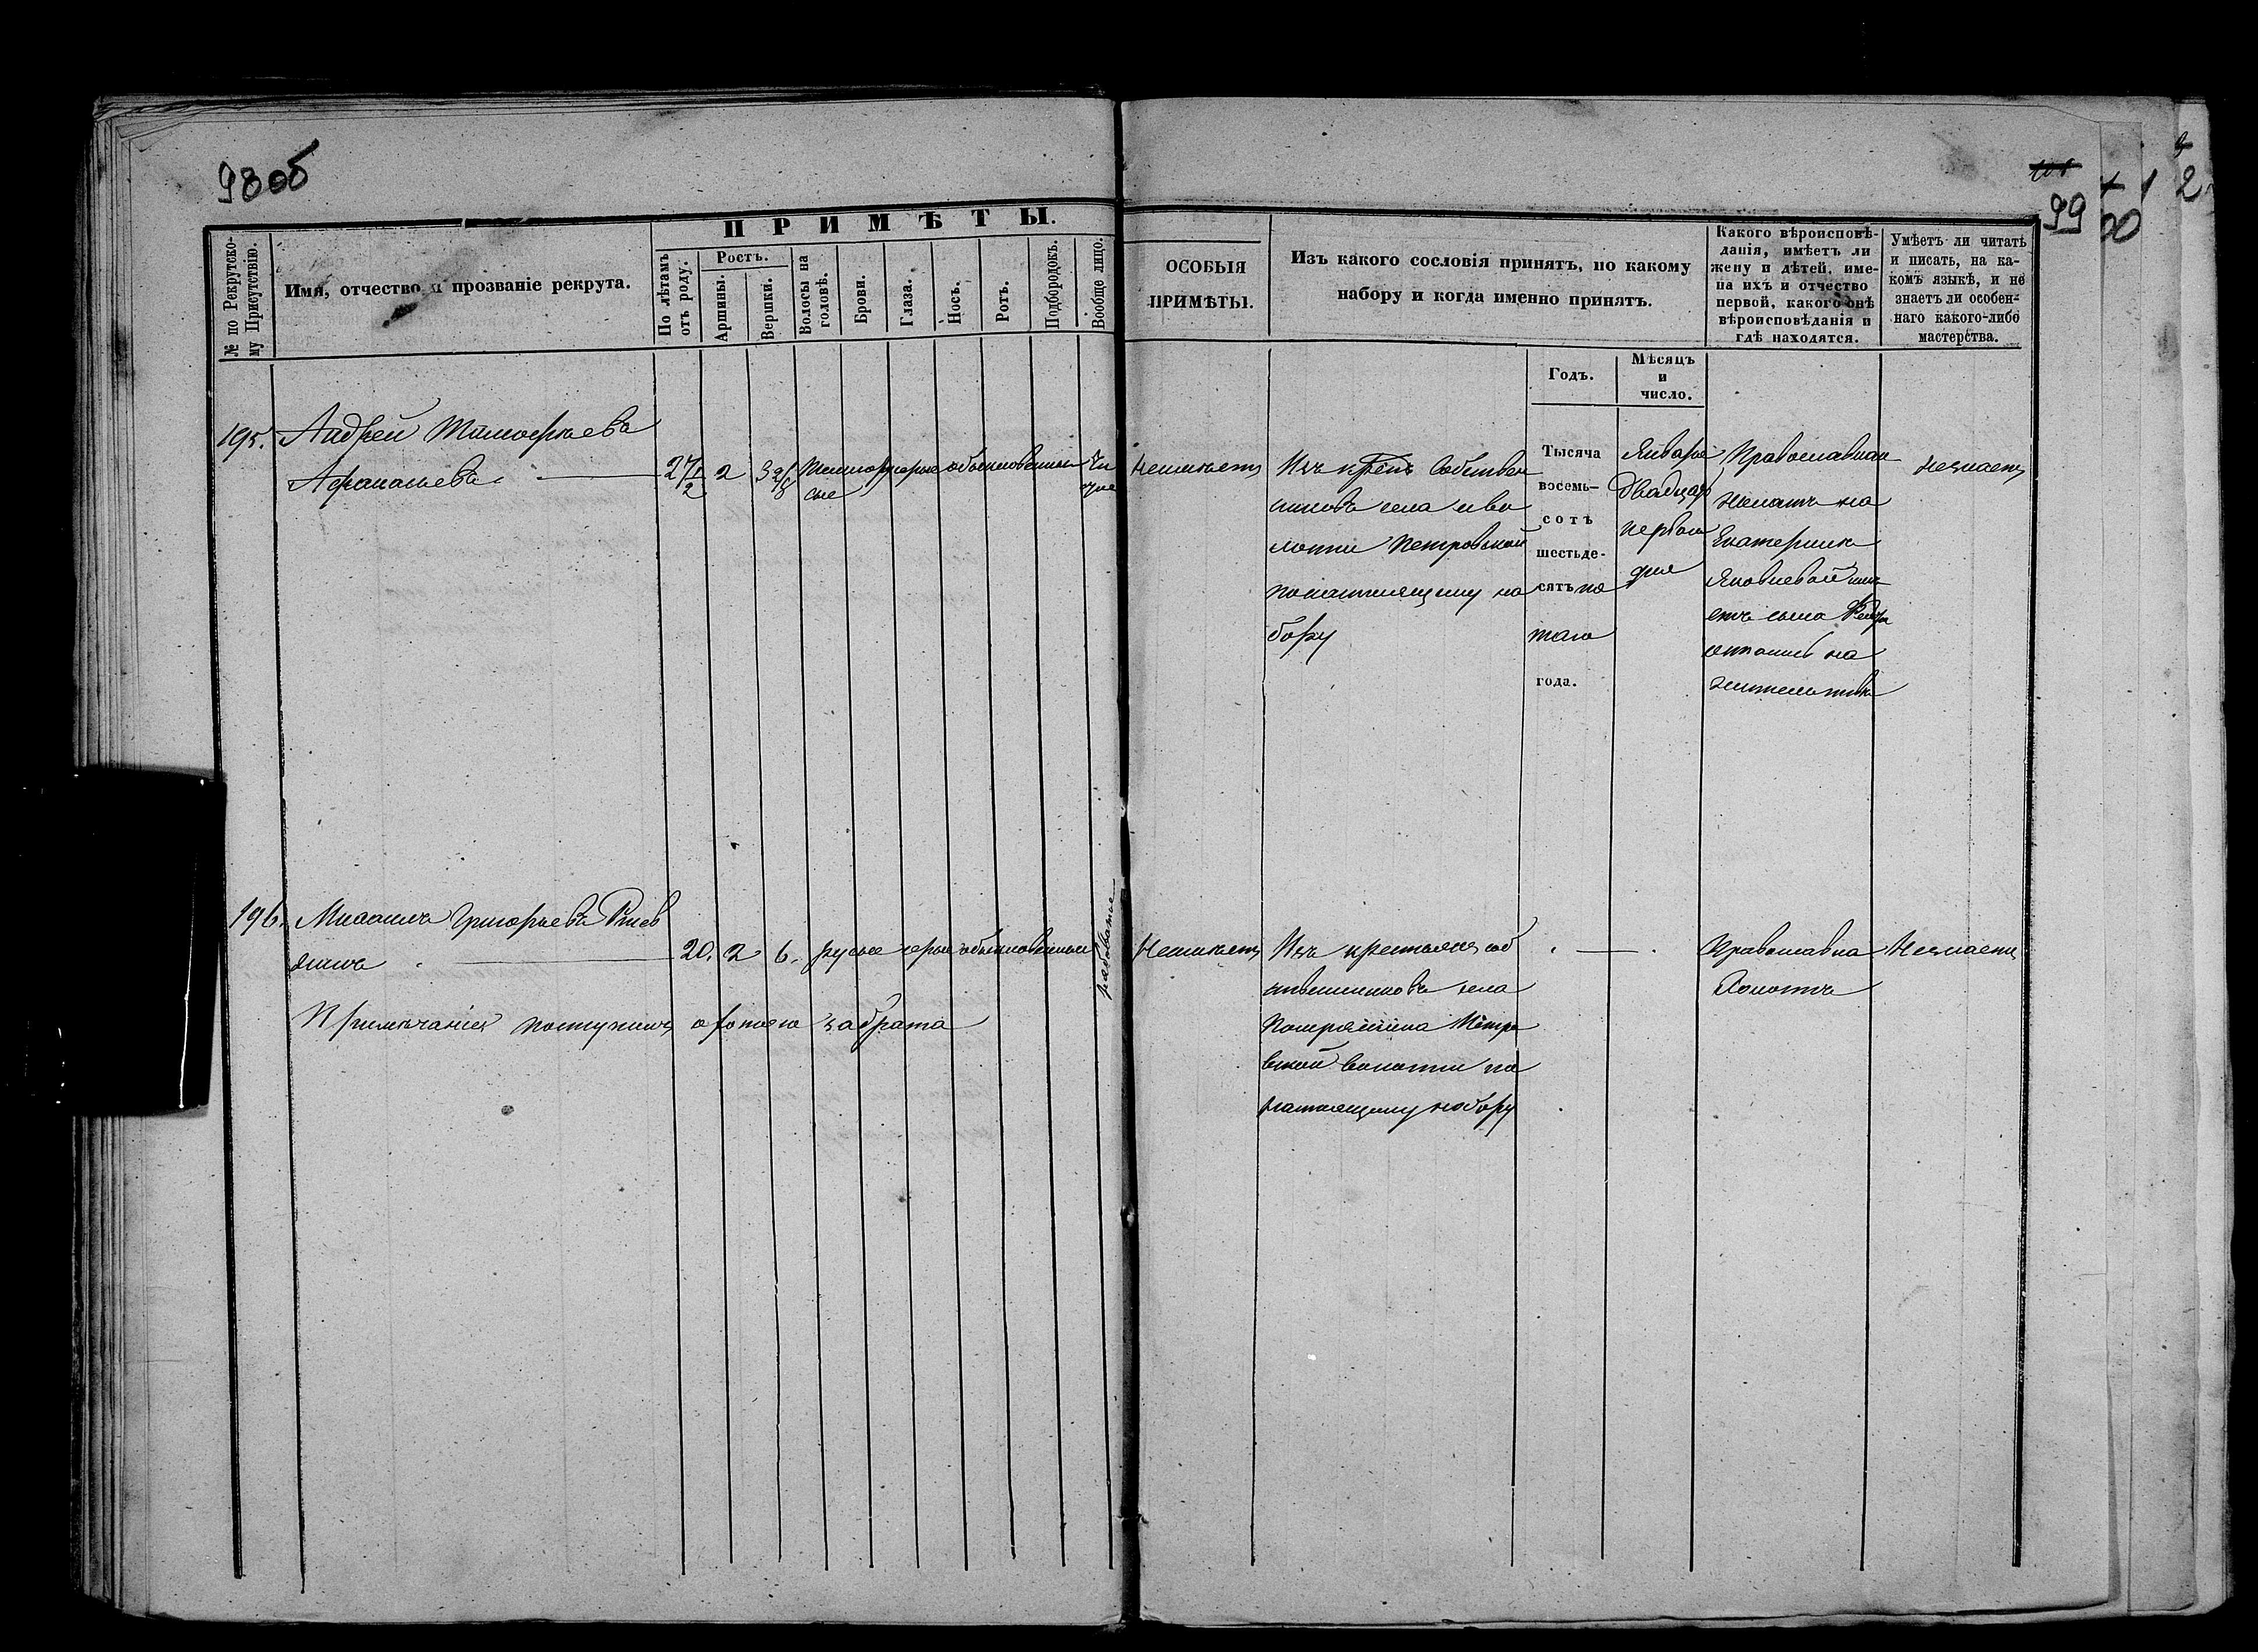 98об
99
П Р И М Ѣ Т Ы.
№ по Рекрутско-
му Присутствію.
Имя, отчество и прозваніе рекрута.
По лѣтамъ
отъ роду.
Ростъ.
Аршины.
Вершки.
Волосы на
головѣ.
Брови.
Глаза.
Носъ.
Ротъ.
Подбородокъ.
Вообще лицо.
ОСОБЫЯ
ПРИМѢТЫ.
Изъ какого сословія принятъ, по какому
набору и когда именно принятъ.
Годъ.
Мѣсяцъ
и
число.
Какого вѣроисповѣ-
данія, имѣетъ ли
жену и дѣтей, име-
на ихъ и отчество
первой, какого онѣ
вѣроисповѣданія и
гдѣ находятся.
Умѣетъ ли читать
и писать, на ка-
комъ языкѣ, и не
знаетъ ли особен-
наго какого-либо
мастерства.
195.
Андрей Тимофѣевъ
Афанасьевъ
27 1/2
2
3 2/8
темнору
сые
сѣрые
обыкновенныи
чи
стое
Неимѣетъ
Изъ крест Собствен
никовъ села и во
лости Петровской
понастоящему на
бору
Тысяча
восемь-
сотъ
шестьде-
сятъ пя
таго
года.
Января
двадцать
первого
дня
Православнаго
женатъ на
Екатеринѣ
Яковлевой имѣ
етъ сына
остались на
жительствѣ
незнаетъ
196.
Михаилъ Григорьевъ
2
20.
6.
русые
сѣрые
обыкновенныи
рябоватое
Примѣчаніе поступилъ охотою забрата
Неимѣетъ
Изъ крестьянъ соб
ственниковъ села
Петро
вской волости по
настоящему набору
Православна
Холостъ
Незнаетъ